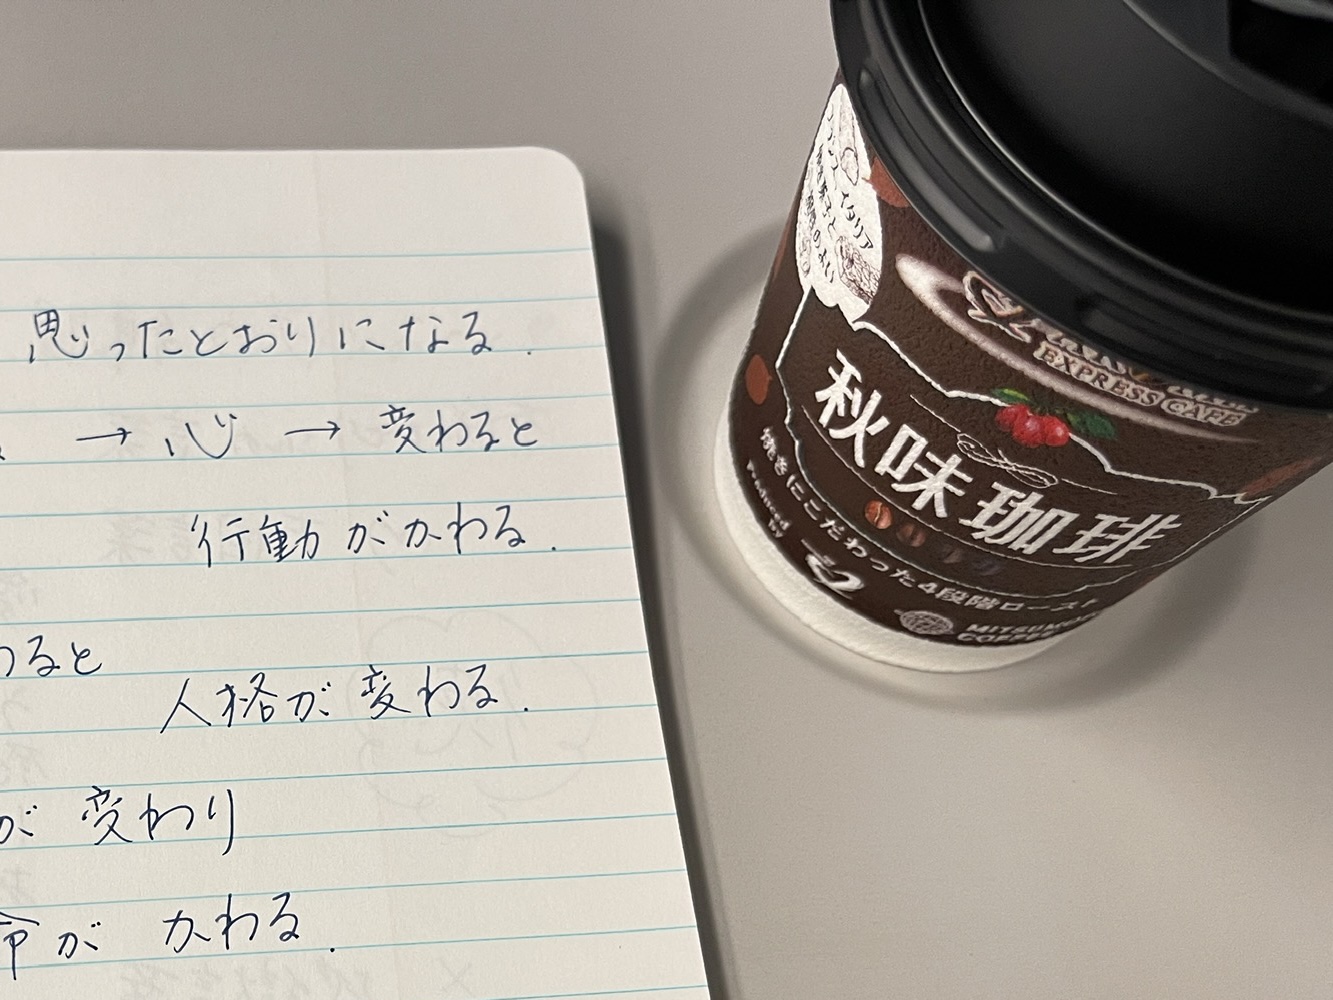 思ったとおりになる.
→ 心 → 変わると
行動がかわる.
わると
人格が変わる.
が 変わり
命が かわる.
イタリア
焼き菓子と
相性のよい
EXPRESS CAFE
秋味珈琲
焼きにこだわった4段階ロースト
Produced
by
MITSUMOTO
COFFEE